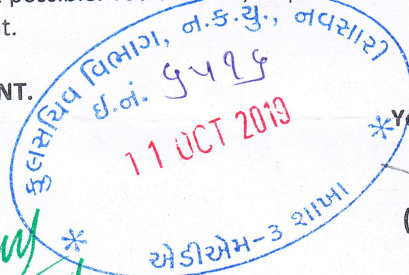 t.
NT.
કુલસચિવ વિભાગ, ન.કૃ.યુ., નવસારી
ઇ.નં. ૬૫૧૬
11 OCT 2019
એડીએમ-૩ શાખા